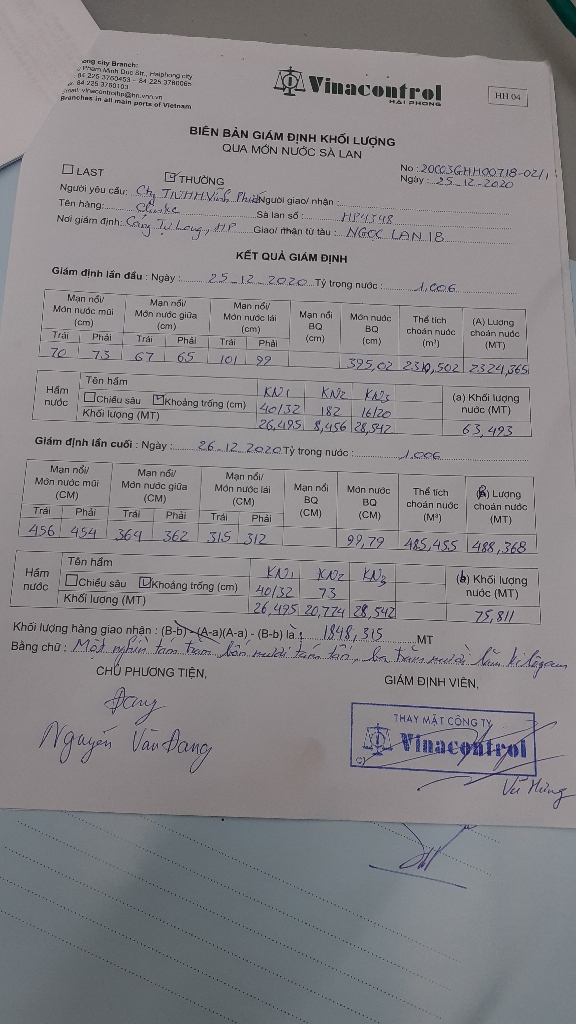 ong city Branch:
Pham Minh Duc Str., Haiphong city
84 225 3760453 - 84 225 3760065
84 225 3760103
Email: vinacontrolhp@hn.vnn.vn
Branches in all main ports of Vietnam
Vinacontrol
HAI PHONG
HH 04
BIÊN BẢN GIÁM ĐỊNH KHỐI LƯỢNG
QUA MỚN NƯỚC SÀ LAN
No : 20C03GHH00718-02/1
Ngày : 25_12_2020
LAST THƯỜNG
Người yêu cầu: Cty TNHH Vĩnh Người giao/ nhận :
Tên hàng: Clinke Sà lan số : HP4348
Nơi giám định: Cảng Tự Long, HP Giao/ nhận từ tàu : NGỌC LAN 18
KẾT QUẢ GIÁM ĐỊNH
Giám định lần đầu : Ngày : 25_12_2020 Tỷ trọng nước : 1,006
Mạn nổi/ Mớn nước mũi (cm) Mạn nổi/ Mớn nước giữa (cm) Mạn nổi/ Mớn nước lái (cm) Mạn nổi BQ (cm) Mớn nước BQ (cm) Thể tích choán nước (m³) (A) Lượng choán nước (MT)
Trái Phải Trái Phải Trái Phải
70 73 67 65 101 99 395,02 2310,502 2324,365
Hầm nước Tên hầm KN1 KN2 KN3 (a) Khối lượng nước (MT)
Chiều sâu Khoảng trống (cm) 40/32 182 16/20
Khối lượng (MT) 26,495 8,456 28,542 63,493
Giám định lần cuối : Ngày : 26_12_2020 Tỷ trọng nước : 1,006
Mạn nổi/ Mớn nước mũi (CM) Mạn nổi/ Mớn nước giữa (CM) Mạn nổi/ Mớn nước lái (CM) Mạn nổi BQ (CM) Mớn nước BQ (CM) Thể tích choán nước (M³) (B) Lượng choán nước (MT)
Trái Phải Trái Phải Trái Phải
456 454 364 362 315 312 99,79 485,455 488,368
Hầm nước Tên hầm KN1 KN2 KN3 (b) Khối lượng nước (MT)
Chiều sâu Khoảng trống (cm) 40/32 73
Khối lượng (MT) 26,495 20,774 28,542 75,811
Khối lượng hàng giao nhận : (B-b) - (A-a)(A-a) - (B-b) là : 1848,315 MT
Bằng chữ : Một nghìn tám trăm bốn mươi tám tấn, ba trăm mười lăm kilôgam
CHỦ PHƯƠNG TIỆN, GIÁM ĐỊNH VIÊN,
Đang
Nguyễn Văn Đang
THAY MẶT CÔNG TY
Vinacontrol
Vũ Hùng